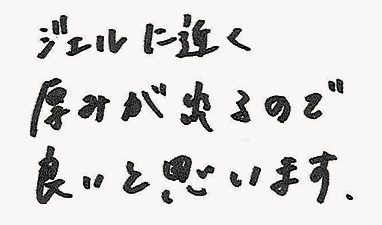 ジェルに近く
厚みが出るので
良いと思います.